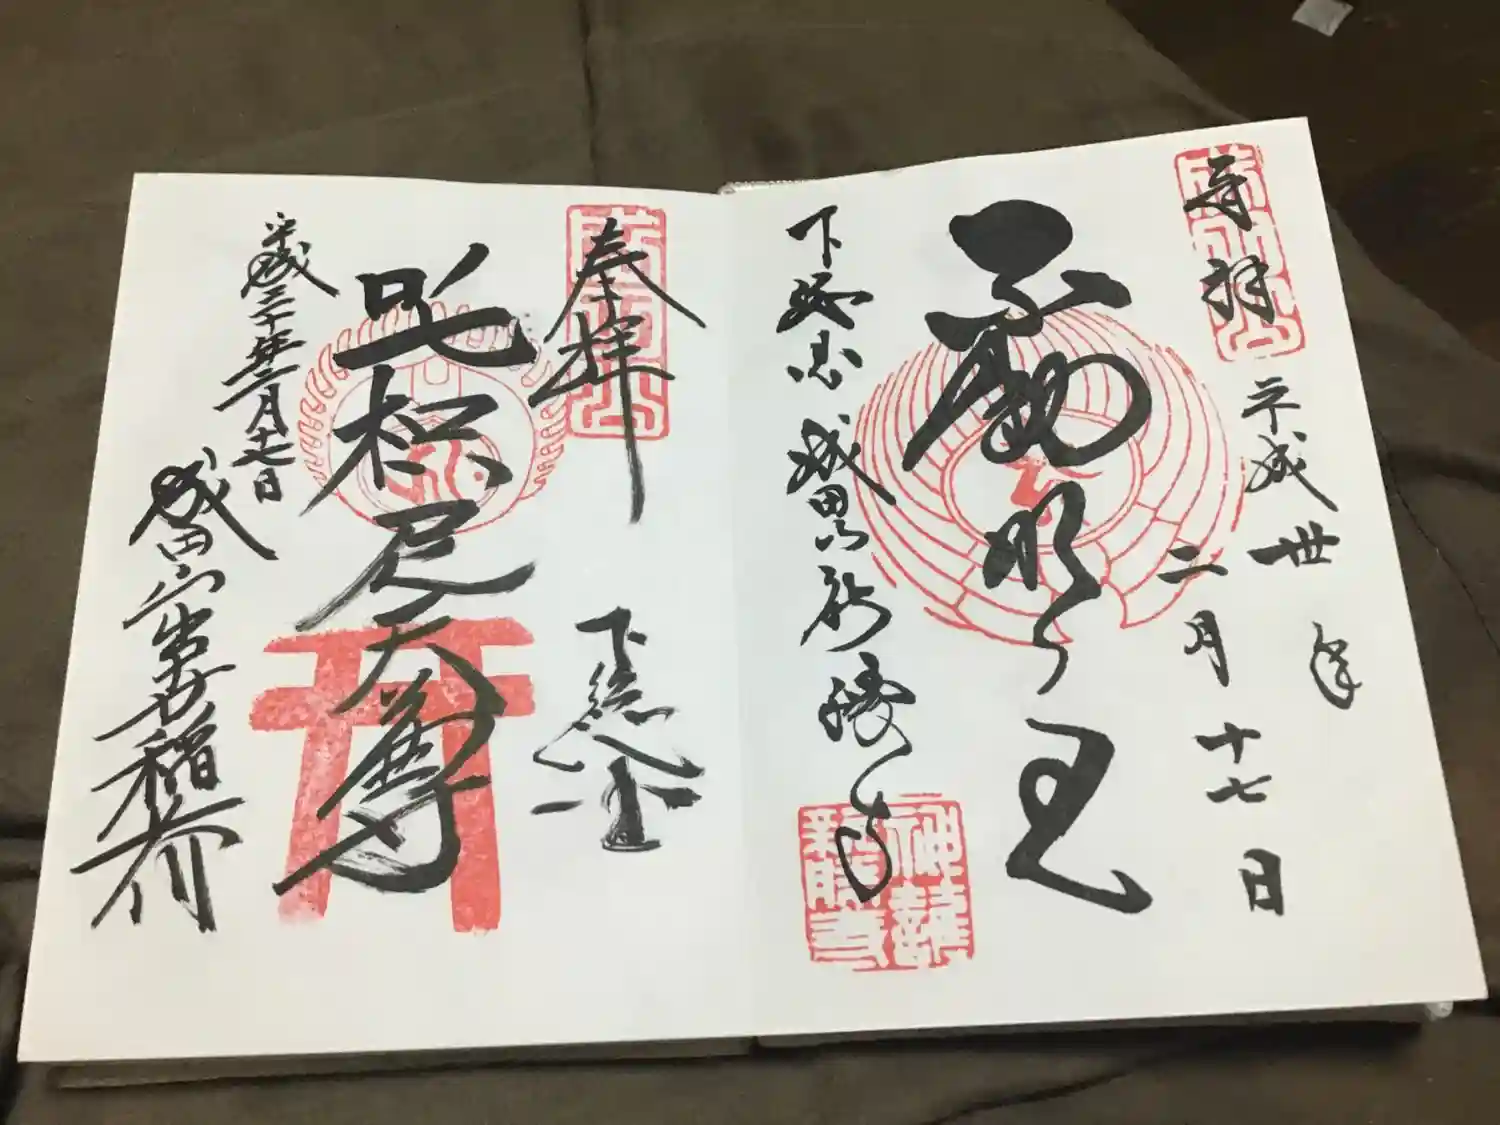 奉拝
平成卅年
二月十七日
不動明王
下総国成田山新勝寺
神護新勝寺
奉拝
下総
吒枳尼天尊
平成三十年二月十七日
成田山出世稲荷